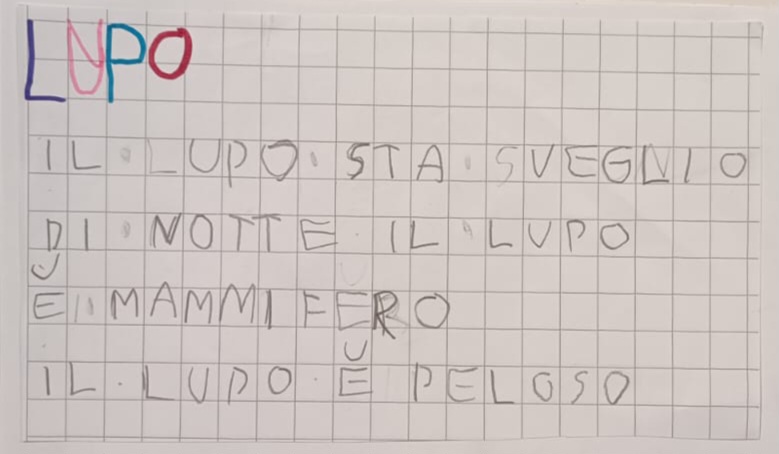 LUPO
IL LUPO STA SVEGLIO
DI NOTTE IL LUPO
È MAMMIFERO
IL LUPO È PELOSO